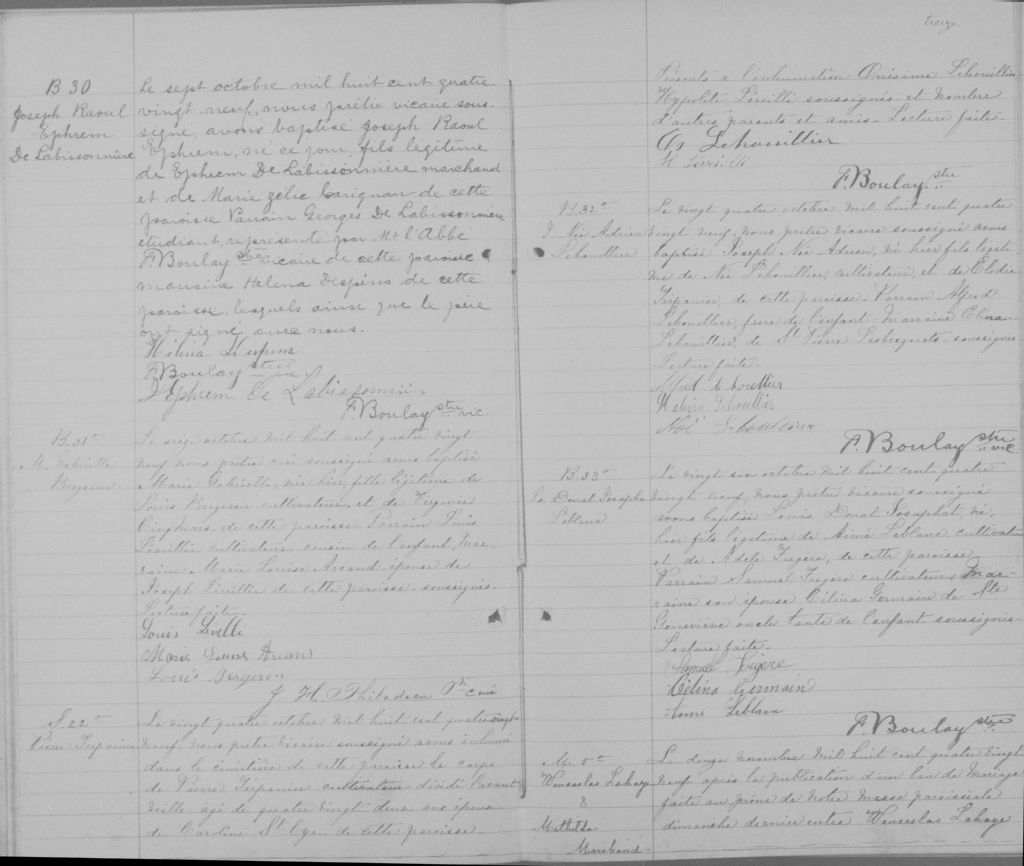 B. 30
Joseph Raoul
Ephrem
De Labissonnière
Le sept octobre mil huit cent quatre
vingt neuf, nous prêtre vicaire sous-
signé, avons baptisé Joseph Raoul
Ephrem, né ce jour, fils legitime
de Ephrem De Labissonnière marchand
et de Marie Zélie Carignan de cette
paroisse Parrain Georges De Labissonnière
étudiant, représenté par Mr l'Abbé
F. Boulay ptre vicaire de cette paroisse
marraine Helena Despins de cette
paroisse, lesquels ainsi que le père
ont signé avec nous.
Héléna Despins
F. Boulay ptre vic
J Ephrem De Labissonnière
F. Boulay ptre vic.
B. 31e
M. Gabrielle
Bergeron
Le seize octobre mil huit cent quatre vingt
neuf nous prêtre curé soussigné avons baptisé
Marie Gabrielle, née hier, fille légitime de
Louis Bergeron cultivateur, et de Virginie
Cinqmars de cette paroisse Parrain Louis
cultivateur cousin de l'enfant, mar-
raine Marie Louise Arcand épouse de
Joseph de cette paroisse soussignés
Lecture faite
Louis
Marie Louise Arcand
Louis Bergeron
J. H. Ptre curé
S. 22e
Pierre Trépanier
Le vingt quatre octobre mil huit cent quatre vingt
neuf, nous prêtre vicaire soussigné avons inhumé
dans le cimétière de cette paroisse le corps
de Pierre Trépanier cultivateur décédé l'avant
veille agé de quatre vingt deux ans époux
de Caroline St Cyr de cette paroisse
treize
Présents à l'inhumation Onésime Lehouillier
Hypolite soussignés et nombre
d'autres parents et amis Lecture faite
On Lehouillier
F. Boulay ptre
B. 32e
J. Noé Adrien
Lehouillier
Le vingt quatre octobre mil huit cent quatre
vingt neuf, nous prêtre vicaire soussigné avons
baptisé Joseph Noé Adrien, né hier fils legiti-
me de Noé Lehouillier, cultivateur, et de Elodie
Trépanier, de cette paroisse Parrain Alfred
Lehouillier, frère de l'enfant Marraine Elina
Lehouillier, de St Pierre Lesbecquets soussignés
Lecture faite.
Alfred Lehouillier
Lehouillier
Noé Lehouillier
F. Boulay ptre vic
B. 33e
Ls Donat Josaphat
Leblanc
Le vingt six octobre mil huit cent quatre
vingt neuf, nous prêtre vicaire soussigné
avons baptisé Louis Donat Josaphat, né
hier fils légitime de Aimé Leblanc cultivateur
et de Adèle Fugère, de cette paroisse
Parrain Samuel Fugère cultivateur, Mar-
raine son épouse Célina Germain de Ste
Geneviève oncle tante de l'enfant soussignés
Lecture faite.
Samuel Fugère
Célina Germain
Aimé Leblanc
F. Boulay ptre
M. 5e
Wenceslas Lahaye
&
Mathilda
Marchand
Le douze novembre mil huit cent quatre vingt
neuf après la publication d'un ban de mariage
faite au prône de notre messe paroissiale
dimanche dernier entre Wenceslas Lahaye